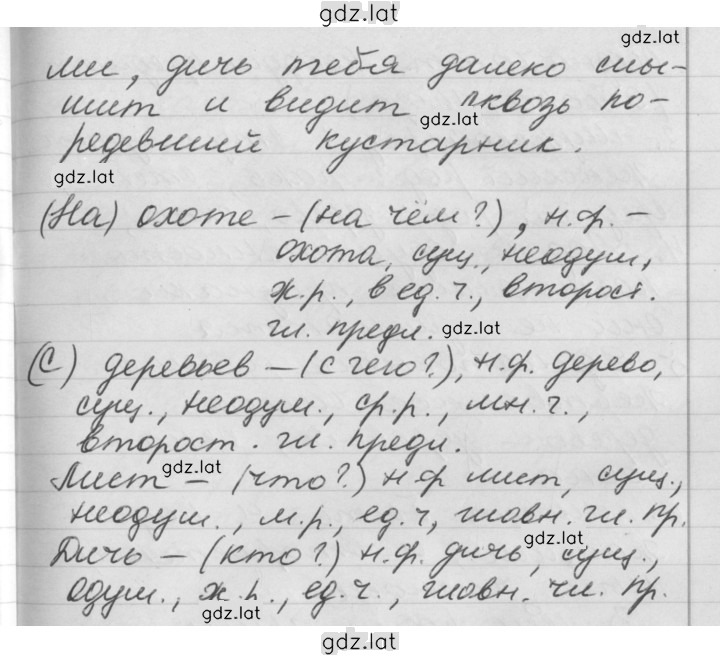 gdz.lat
gdz.lat
ми, дичь тебя далеко слы-
шит и видит сквозь по-
gdz.lat
редевший кустарник.
gdz.lat
(На) охоте – (на чём?), н.ф. –
охота, сущ., неодуш.,
ж.р., в ед.ч., второст.
гл. предл. gdz.lat
(С) деревьев – (с чего?), н.ф. дерево,
сущ., неодуш., ср.р., мн.ч.,
второст. гл. предл.
gdz.lat
Лист – (что?) н.ф лист, сущ.,
неодуш., м.р., ед.ч, главн. гл. пр.
gdz.lat
Дичь – (кто?) н.ф. дичь, сущ.,
одуш., ж.р., ед.ч., главн. чл. пр.
gdz.lat
gdz.lat